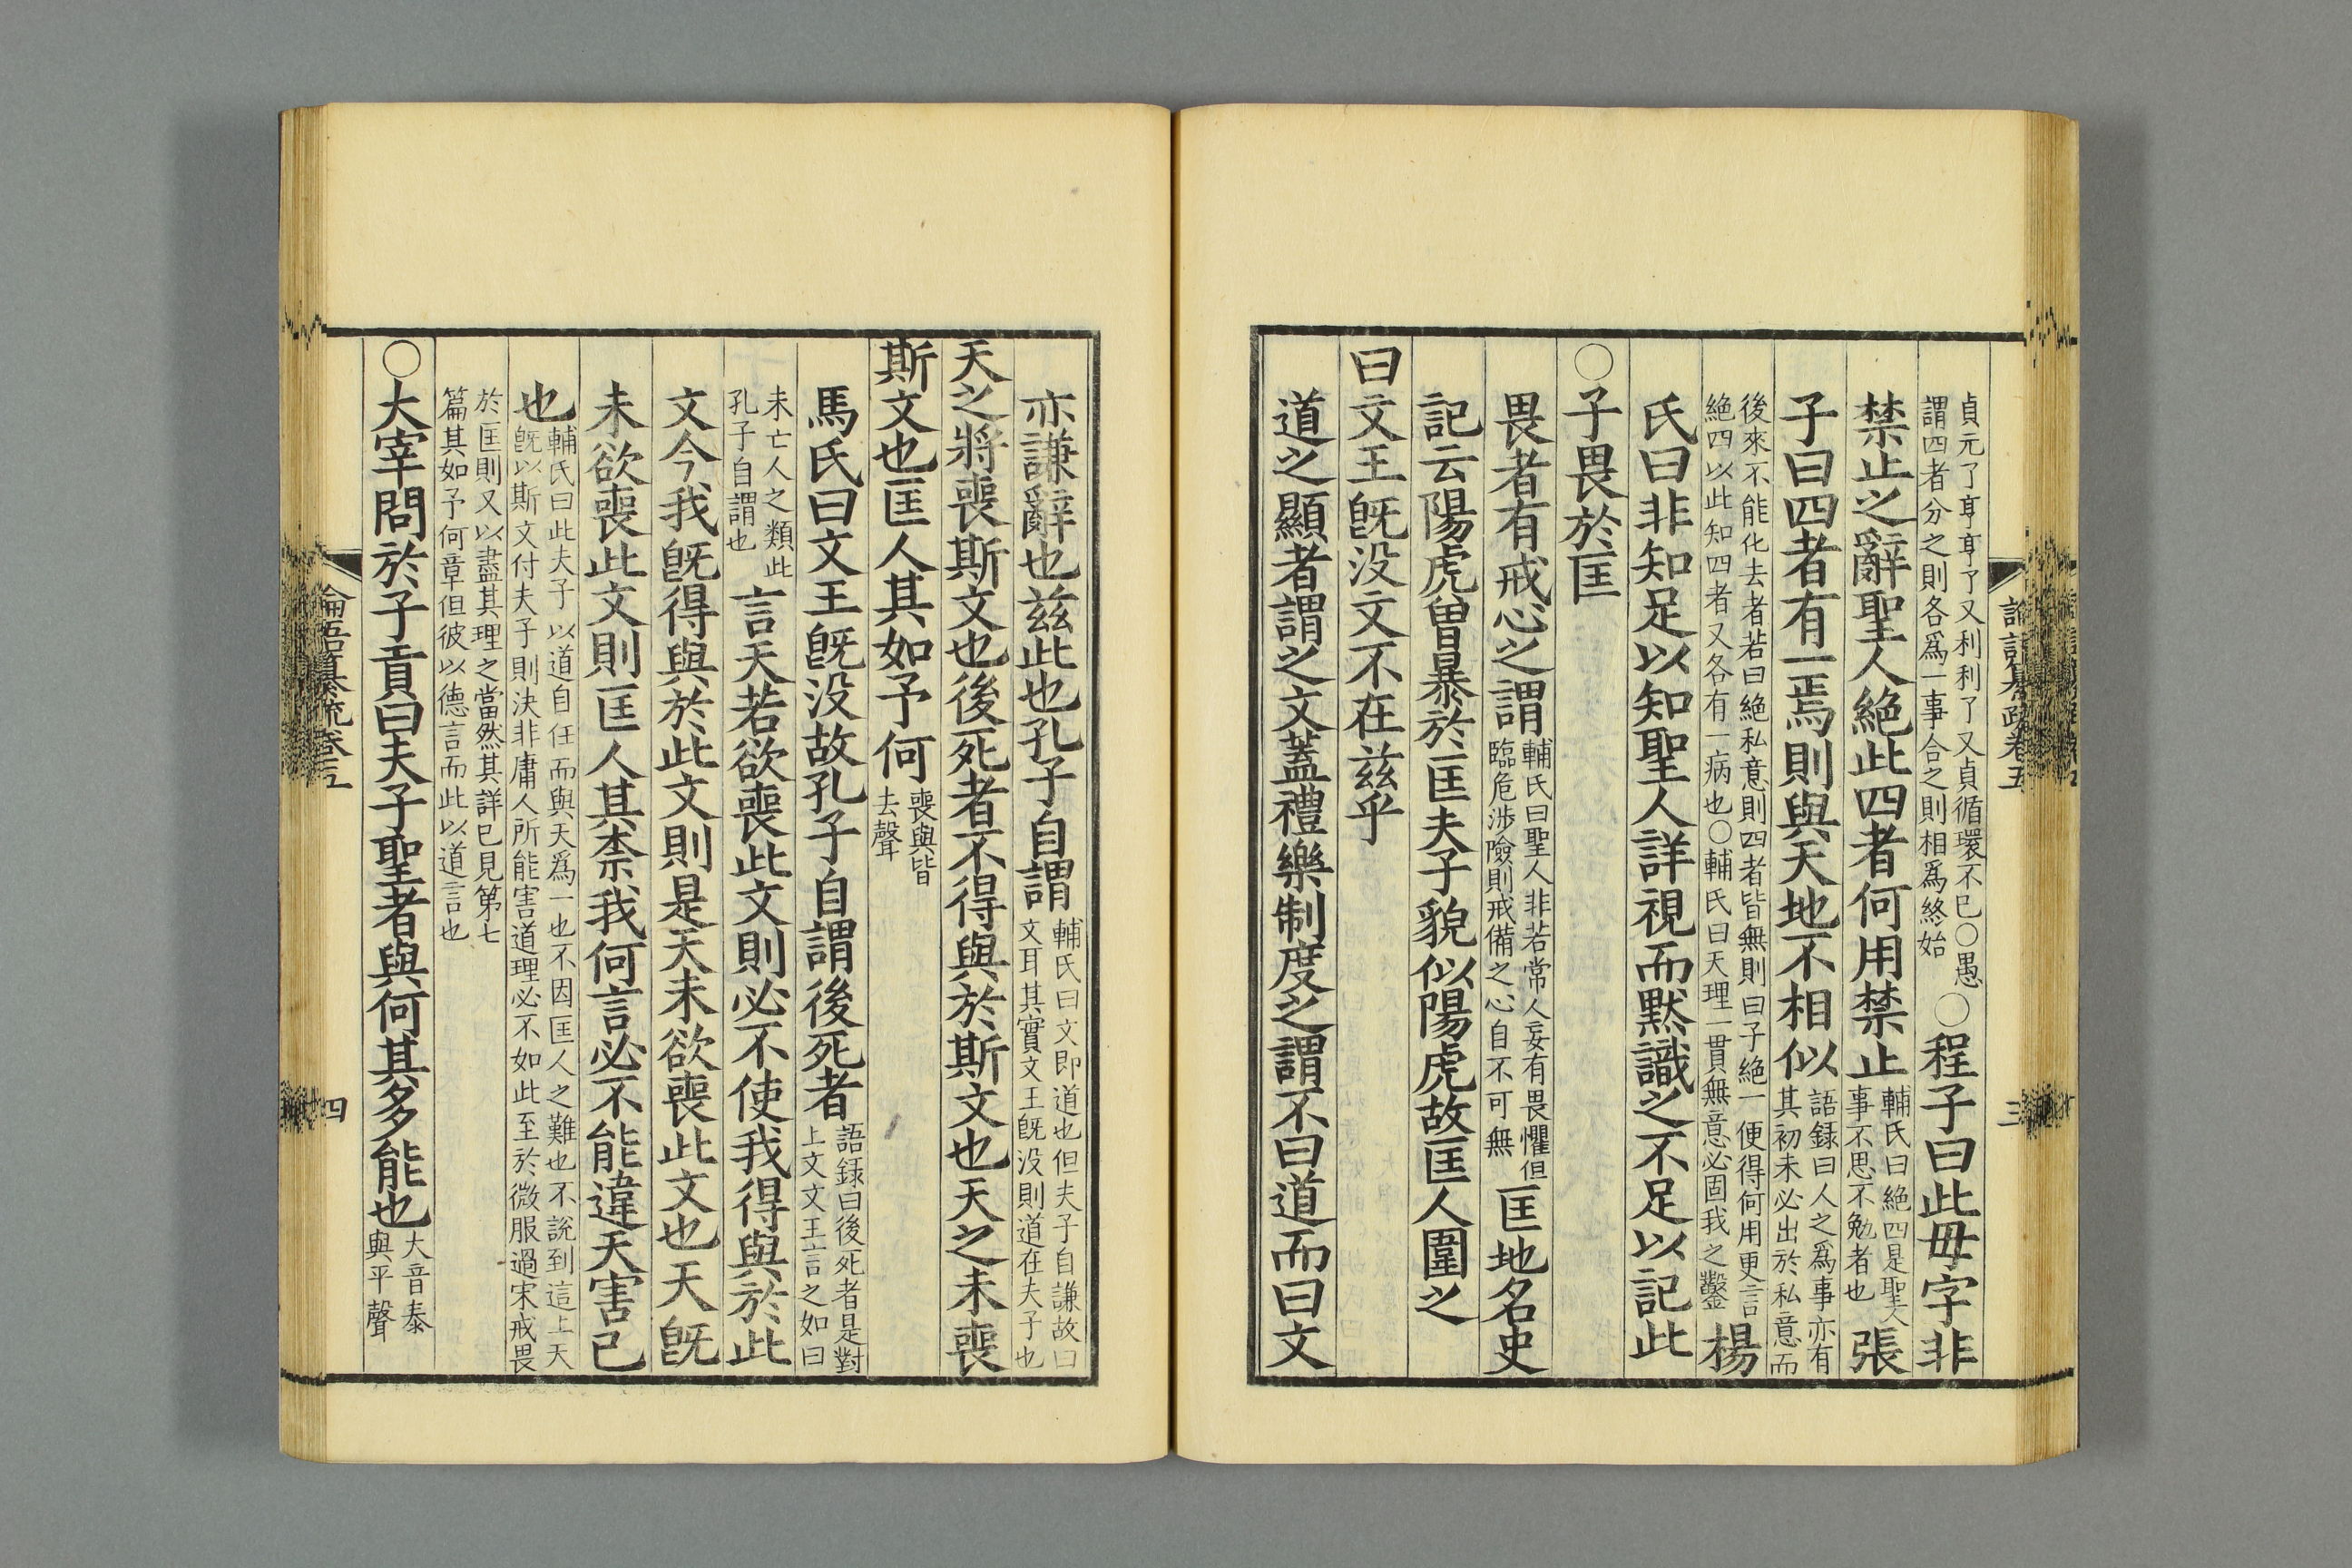 貞元了亨亨了又利利了又貞循環不已○愚
謂四者分之則各爲一事合之則相爲終始
○程子曰此毋字非
禁止之辭聖人絶此四者何用禁止
輔氏曰絶四是聖人
事不思不勉者也
張
子曰四者有一焉則與天地不相似
語録曰人之爲事亦有
其初未必出於私意而
後來不能化去者若曰絶私意則四者皆無則曰子絶一便得何用更言
絶四以此知四者又各有一病也○輔氏曰天理一貫無意必固我之鑿
楊
氏曰非知足以知聖人詳視而默識之不足以記此
○子畏於匡
畏者有戒心之謂
輔氏曰聖人非若常人妄有畏懼但
臨危涉險則戒備之心自不可無
匡地名史
記云陽虎曽暴於匡夫子貌似陽虎故匡人圍之
曰文王旣没文不在兹乎
道之顯者謂之文蓋禮樂制度之謂不曰道而曰文
論語纂疏卷五
三
亦謙辭也兹此也孔子自謂
輔氏曰文即道也但夫子自謙故曰
文耳其實文王旣没則道在夫子也
天之將喪斯文也後死者不得與於斯文也天之未喪
斯文也匡人其如予何
喪與皆
去聲
馬氏曰文王旣没故孔子自謂後死者
語録曰後死者是對
上文文王言之如曰
未亡人之類此
孔子自謂也
言天若欲喪此文則必不使我得與於此
文今我旣得與於此文則是天未欲喪此文也天旣
未欲喪此文則匡人其柰我何言必不能違天害己
也
輔氏曰此夫子以道自任而與天爲一也不因匡人之難也不説到這上天
旣以斯文付夫子則決非庸人所能害道理必不如此至於微服過宋戒畏
於匡則又以盡其理之當然其詳已見第七
篇其如予何章但彼以德言而此以道言也
○大宰問於子貢曰夫子聖者與何其多能也
大音泰
與平聲
論語纂疏卷五
四